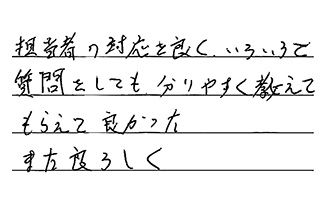 担当者の対応も良く、いろいろで
質問をしても分りやすく教えて
もらえて良かった
また良ろしく